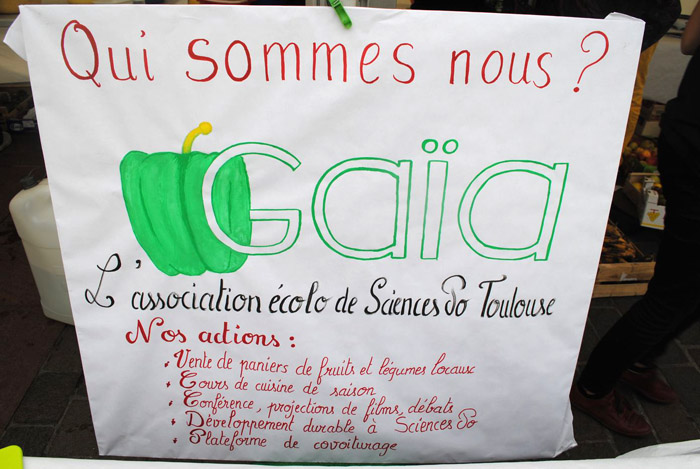 Qui sommes nous ?
Gaïa
L'association écolo de Sciences Po Toulouse
Nos actions :
. Vente de paniers de fruits et légumes locaux
. Cours de cuisine de saison
. Conférence, projections de films, débats
. Développement durable à Sciences Po
. Plateforme de covoiturage